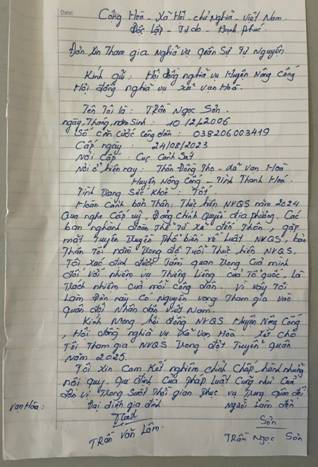 Date:
Cộng Hòa - Xã Hội - chủ Nghĩa - Việt Nam
Độc Lập - Tự do - Hạnh Phúc
Đơn Xin Tham gia Nghĩa vụ Quân Sự Tự Nguyện
Kính gửi: Hội đồng nghĩa vụ Huyện Nông Cống
Hội đồng nghĩa vụ xã Vạn Hoà.
Tên Tôi là: Trần Ngọc Sơn.
ngày, Tháng, năm Sinh: 10/12/2006
Số căn cước công dân: 038206003419
Cấp ngày: 24/08/2023
Nơi Cấp: Cục Cảnh Sát
Nơi ở hiện nay: Thôn Đông Thọ - xã Vạn Hoà
Huyện Nông Cống - Tỉnh Thanh Hoá.
Tình Trạng Sức Khoẻ: Tốt
Hoàn Cảnh bản Thân: Thực hiện NVQS năm 2024
Qua nghe Cấp uỷ, Đảng chính Quyền địa phương. Các
ban nghành đoàn Thể Từ Xã đến Thôn, gặp
mặt Tuyên Truyền Phổ biến về luật NVQS, bản
Thân Tôi nằm Trong độ Tuổi Thực hiện NVQS.
Tôi xác định được Tầm quan Trọng Của mình
đối với nhiệm vụ Thiêng Liêng Của Tổ quốc, Là
Trách nhiệm Của mỗi công dân. Vì vậy Tôi
Làm Đơn này Có Nguyện vọng Tham gia vào
quân đội Nhân dân Việt Nam.
Kính Mong hội đồng NVQS Huyện Nông Cống
Hội đồng nghĩa vụ Xã Vạn Hoà Xét Cho
Tôi Tham gia NVQS Trong đợt Tuyển Quân
năm 2025.
Tôi Xin Cam Kết nghiêm chỉnh Chấp hành những
nội Quy. Qui định Của pháp luật Cũng như Của
đơn vị Trong Suốt Thời gian phục vụ Trong quân đội
Vạn Hoà:
Đại diện gia đình
Người Làm đơn
Sơn
Trần Văn Lâm
Trần Ngọc Sơn